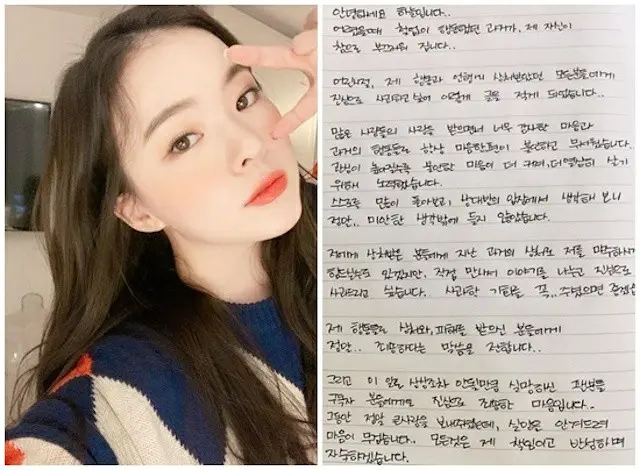 안녕하세요 하늘입니다..
어렸을때 철없이 행동했던 과거가, 제 자신이
참으로 부끄러워 집니다..
어린시절, 제 행동과 언행에 상처받았던 모든분들에게
진심으로 사과하고 싶어 이렇게 글을 적게 되었습니다..
많은 사람들의 사랑을 받으면서 너무 감사한 마음과
과거의 행동들로 항상 마음한편이 불안하고 무서웠습니다..
관심이 높아질수록 불안한 마음이 더 커져, 더 열심히 살기
위해 노력했습니다.
스스로 많이 돌아보고, 상대방의 입장에서 생각해 보니
정말.. 미안한 생각밖에 들지 않았습니다.
저에게 상처받은 분들에게 지난 과거의 상처로 저를 마주하시기
힘드실수도 있겠지만, 직접 만나서 이야기를 나누고 진심으로
사과드리고 싶습니다. 사과할 기회를 꼭.. 주셨으면 좋겠습
제 행동들로 상처와, 피해를 받으신 분들에게
정말.. 죄송하다는 말씀을 전합니다..
그리고 이 일로 상상조차 안될만큼 실망하신 팬분들
구독자 분들에게도 진심으로 죄송한 마음입니다..
그동안 정말 큰사랑을 보내주셨는데, 실망을 안겨드려
마음이 무겁습니다.. 모든것은 제 책임이고 반성하며
자숙하겠습니다.